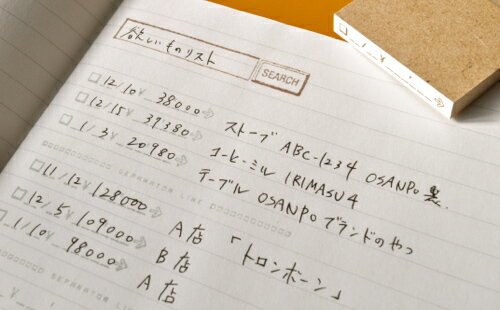 欲しいものリスト SEARCH
□12/10 ¥ 38000 ストーブ ABC-1234 OSANPO裏.
□12/15 ¥ 39380 コーヒーミル IRIMASU4
□1/3 ¥ 20980 テーブル OSANPOブランドのやつ
SEPARATOR LINE
□11/12 ¥128000 A店 「トロンボーン」
□12/5 ¥109000 B店
□1/10 ¥ 98000 A店
SEPARATOR LINE